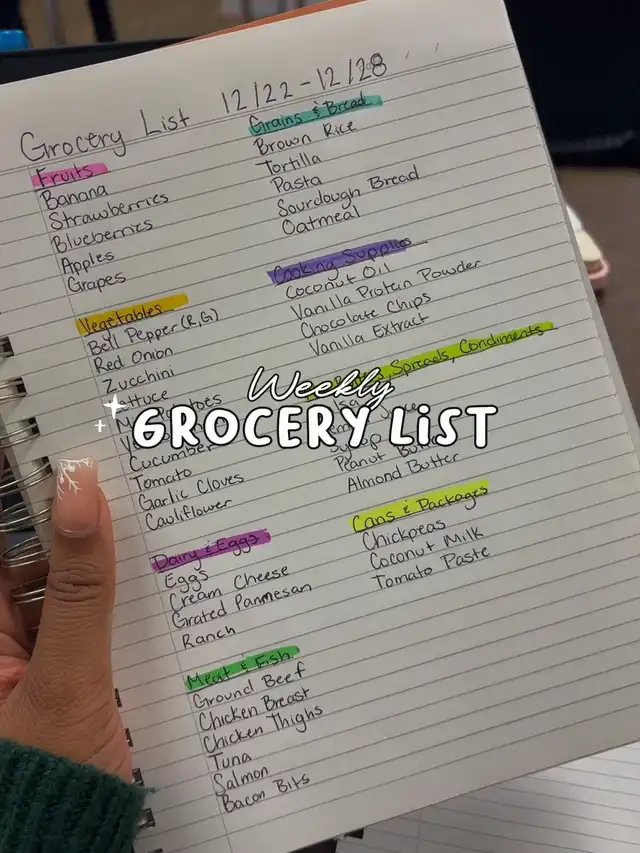 Grocery List 12/22-12/28
Fruits
Banana
Strawberries
Blueberries
Apples
Grapes
Vegetables
Bell Pepper (R,G)
Red Onion
Zucchini
Cucumber
Tomato
Garlic Cloves
Cauliflower
Dairy & Eggs
Eggs
Cream Cheese
Grated Parmesan
Ranch
Meat & Fish
Ground Beef
Chicken Breast
Chicken Thighs
Tuna
Salmon
Bacon Bits
Grains & Bread
Brown Rice
Tortilla
Pasta
Sourdough Bread
Oatmeal
Cooking Supplies
Coconut Oil
Vanilla Protein Powder
Chocolate Chips
Vanilla Extract
Spreads, Condiments
Peanut
Almond Butter
Cans & Packages
Chickpeas
Coconut Milk
Tomato Paste
Weekly
GROCERY LiST